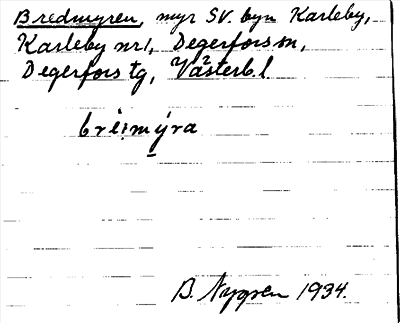 Bredmyren, myr SV. byn Karleby,
Karleby nr 1, Degerfors sn,
Degerfors tg, Västerb. l.
brèi:mýra
B. Nygren 1934.